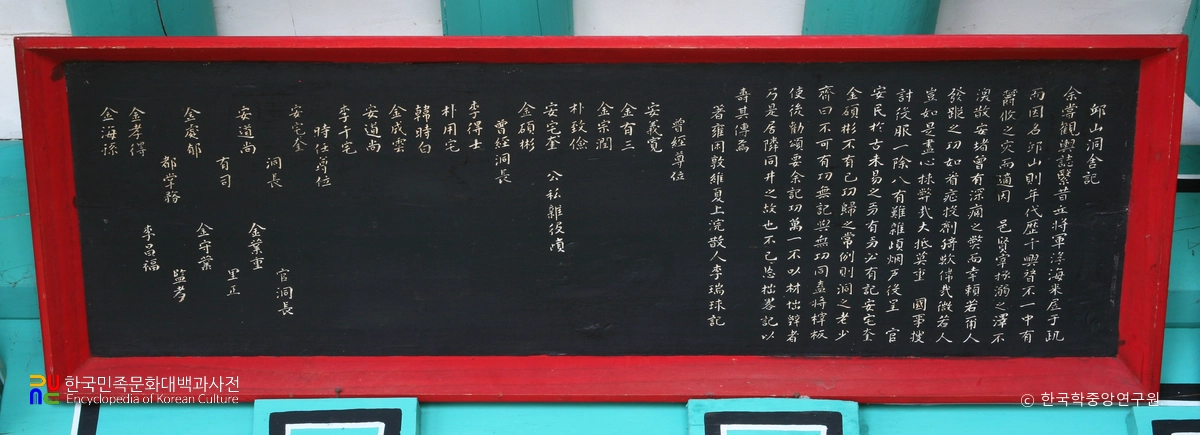 邱山洞舍記
余嘗觀輿誌緊昔 將軍浮海來 于此
而因名邱山則年代歷千興替不一中有
鬱攸之灾而適因 邑賢宰拯溺之澤不
澳故安堵曾有深痛之弊而幸賴若爾人
發 之功如着 投劑猗歟偉哉微若人
豈如是盡心 弊哉大抵莫重 國事搜
討後服一除八有雖雜 烟戶後呈 官
安民於古未易之 有 必有記安宅奎
金碩彬不有己功歸之常例則洞之老少
齊曰不可有功無記與無功同 將樟板
使後勸頌要余記功萬一不以材拙辭者
乃是居隣同井之故也不已忘拙畧記以
壽其傳焉
著雍困敦維夏上浣散人李瑞球記
曾經尊位
安義寬
金百三
金宗潤
朴致儉
安宅奎 公私雜後
金碩彬
曾經洞長
李得士
朴用宅
韓時白
金成雲
安道尚
李千宅
時任尊位
安宅金
官洞長
洞長
金業重
安道尚
里正
有司
金守業
金處郁
監考
都掌務
李昌福
金孝得
金海孫
한국민족문화대백과사전
Encyclopedia of Korean Culture
ⓒ 한국학중앙연구원